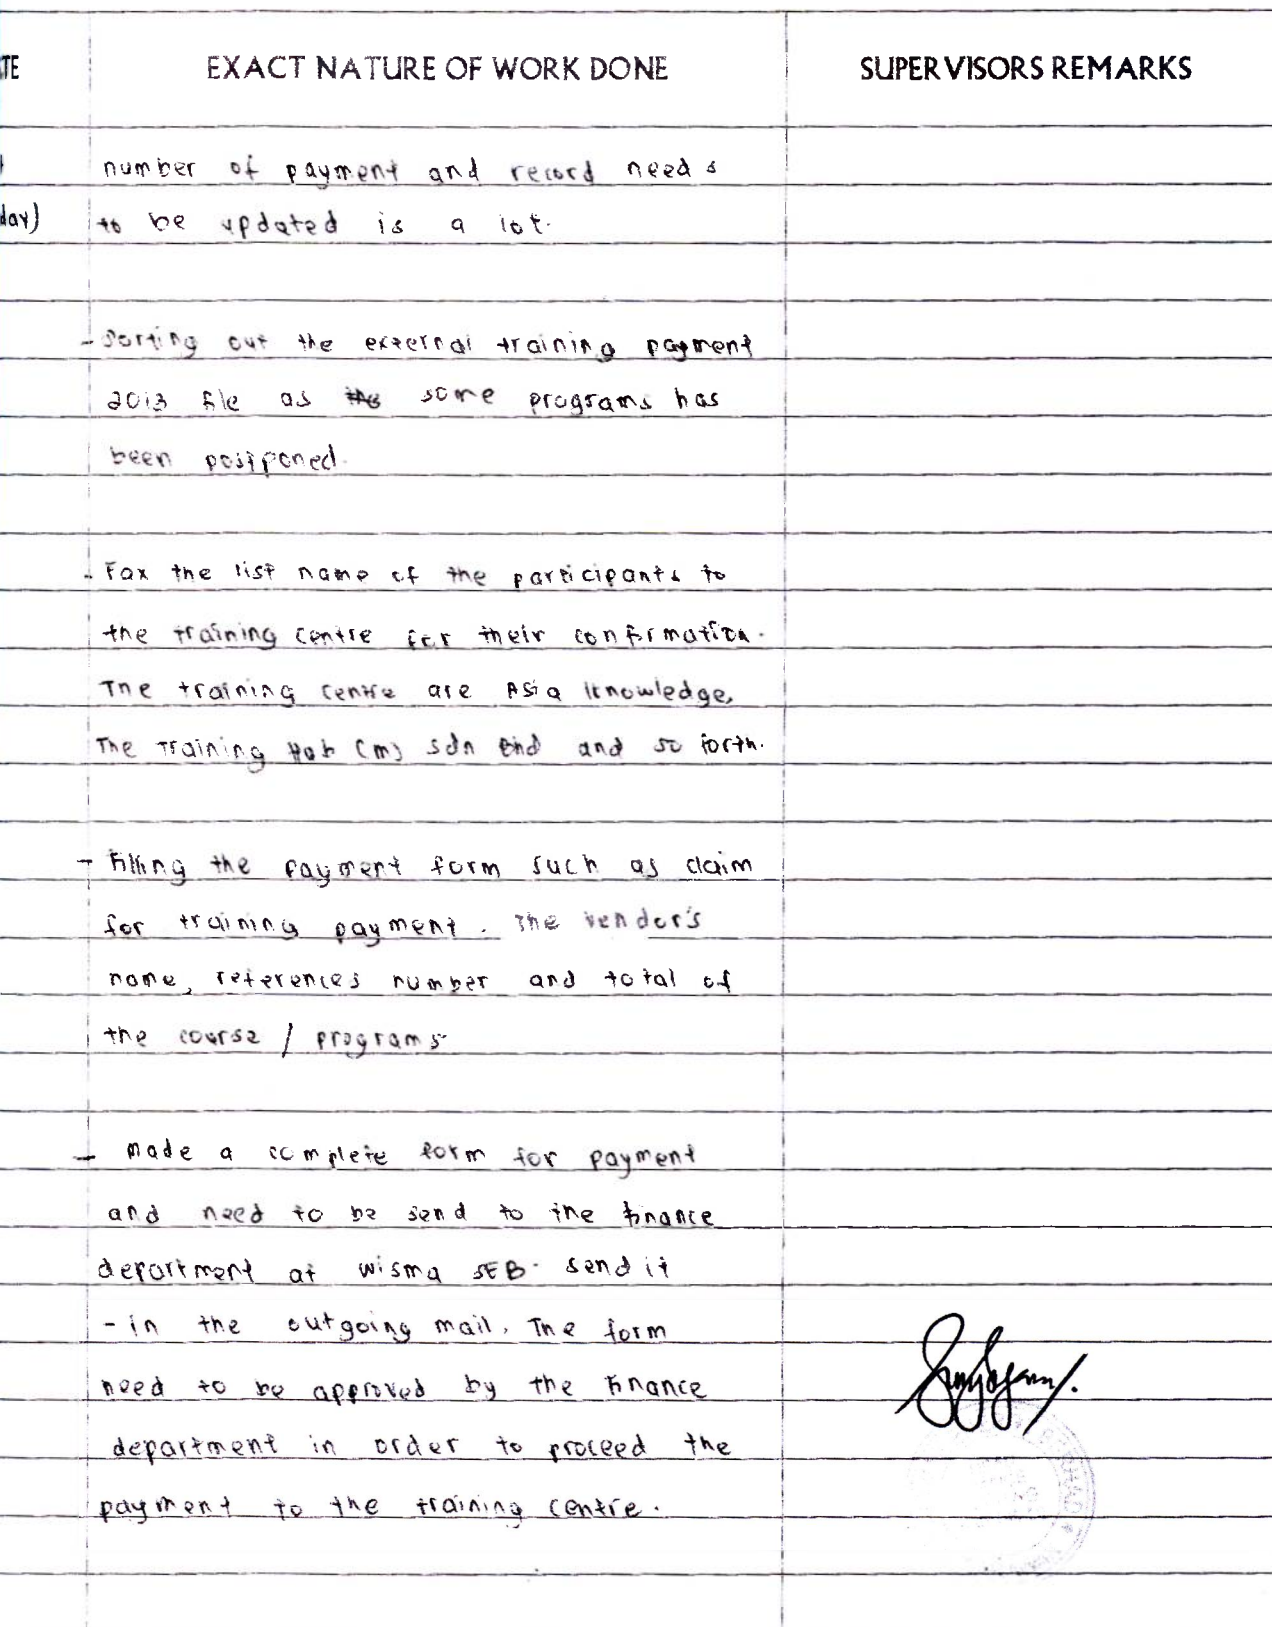 TE EXACT NATURE OF WORK DONE SUPERVISORS REMARKS
number of payment and record needs
day) to be updated is a lot.
- Sorting out the external training payment
2013 file as the some programs has
been postponed.
- Fax the list name of the participants to
the training centre for their confirmation.
The training centre are Asia knowledge,
The Training Hub (m) sdn Bhd and so forth.
- Filling the payment form such as claim
for training payment. The vendor's
name, references number and total of
the course / programs
- made a complete form for payment
and need to be send to the finance
department at wisma SEB. send it
- in the outgoing mail. The form
need to be approved by the finance
department in order to proceed the
payment to the training centre.